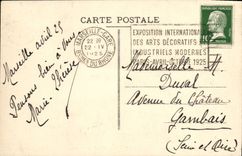 CARTE POSTALE
MARSEILLE-GARE
22 IV
1925
EXPOSITION INTERNATIONALE
DES ARTS DÉCORATIFS
INDUSTRIELS MODERNES
PARIS AVRIL-OCTOBRE 1925
Marseille avril 25
Pensons bien à vous
Marie Thérèse
Mademoiselle
Duval
Avenue du Château
Gambais
(Seine et Oise)